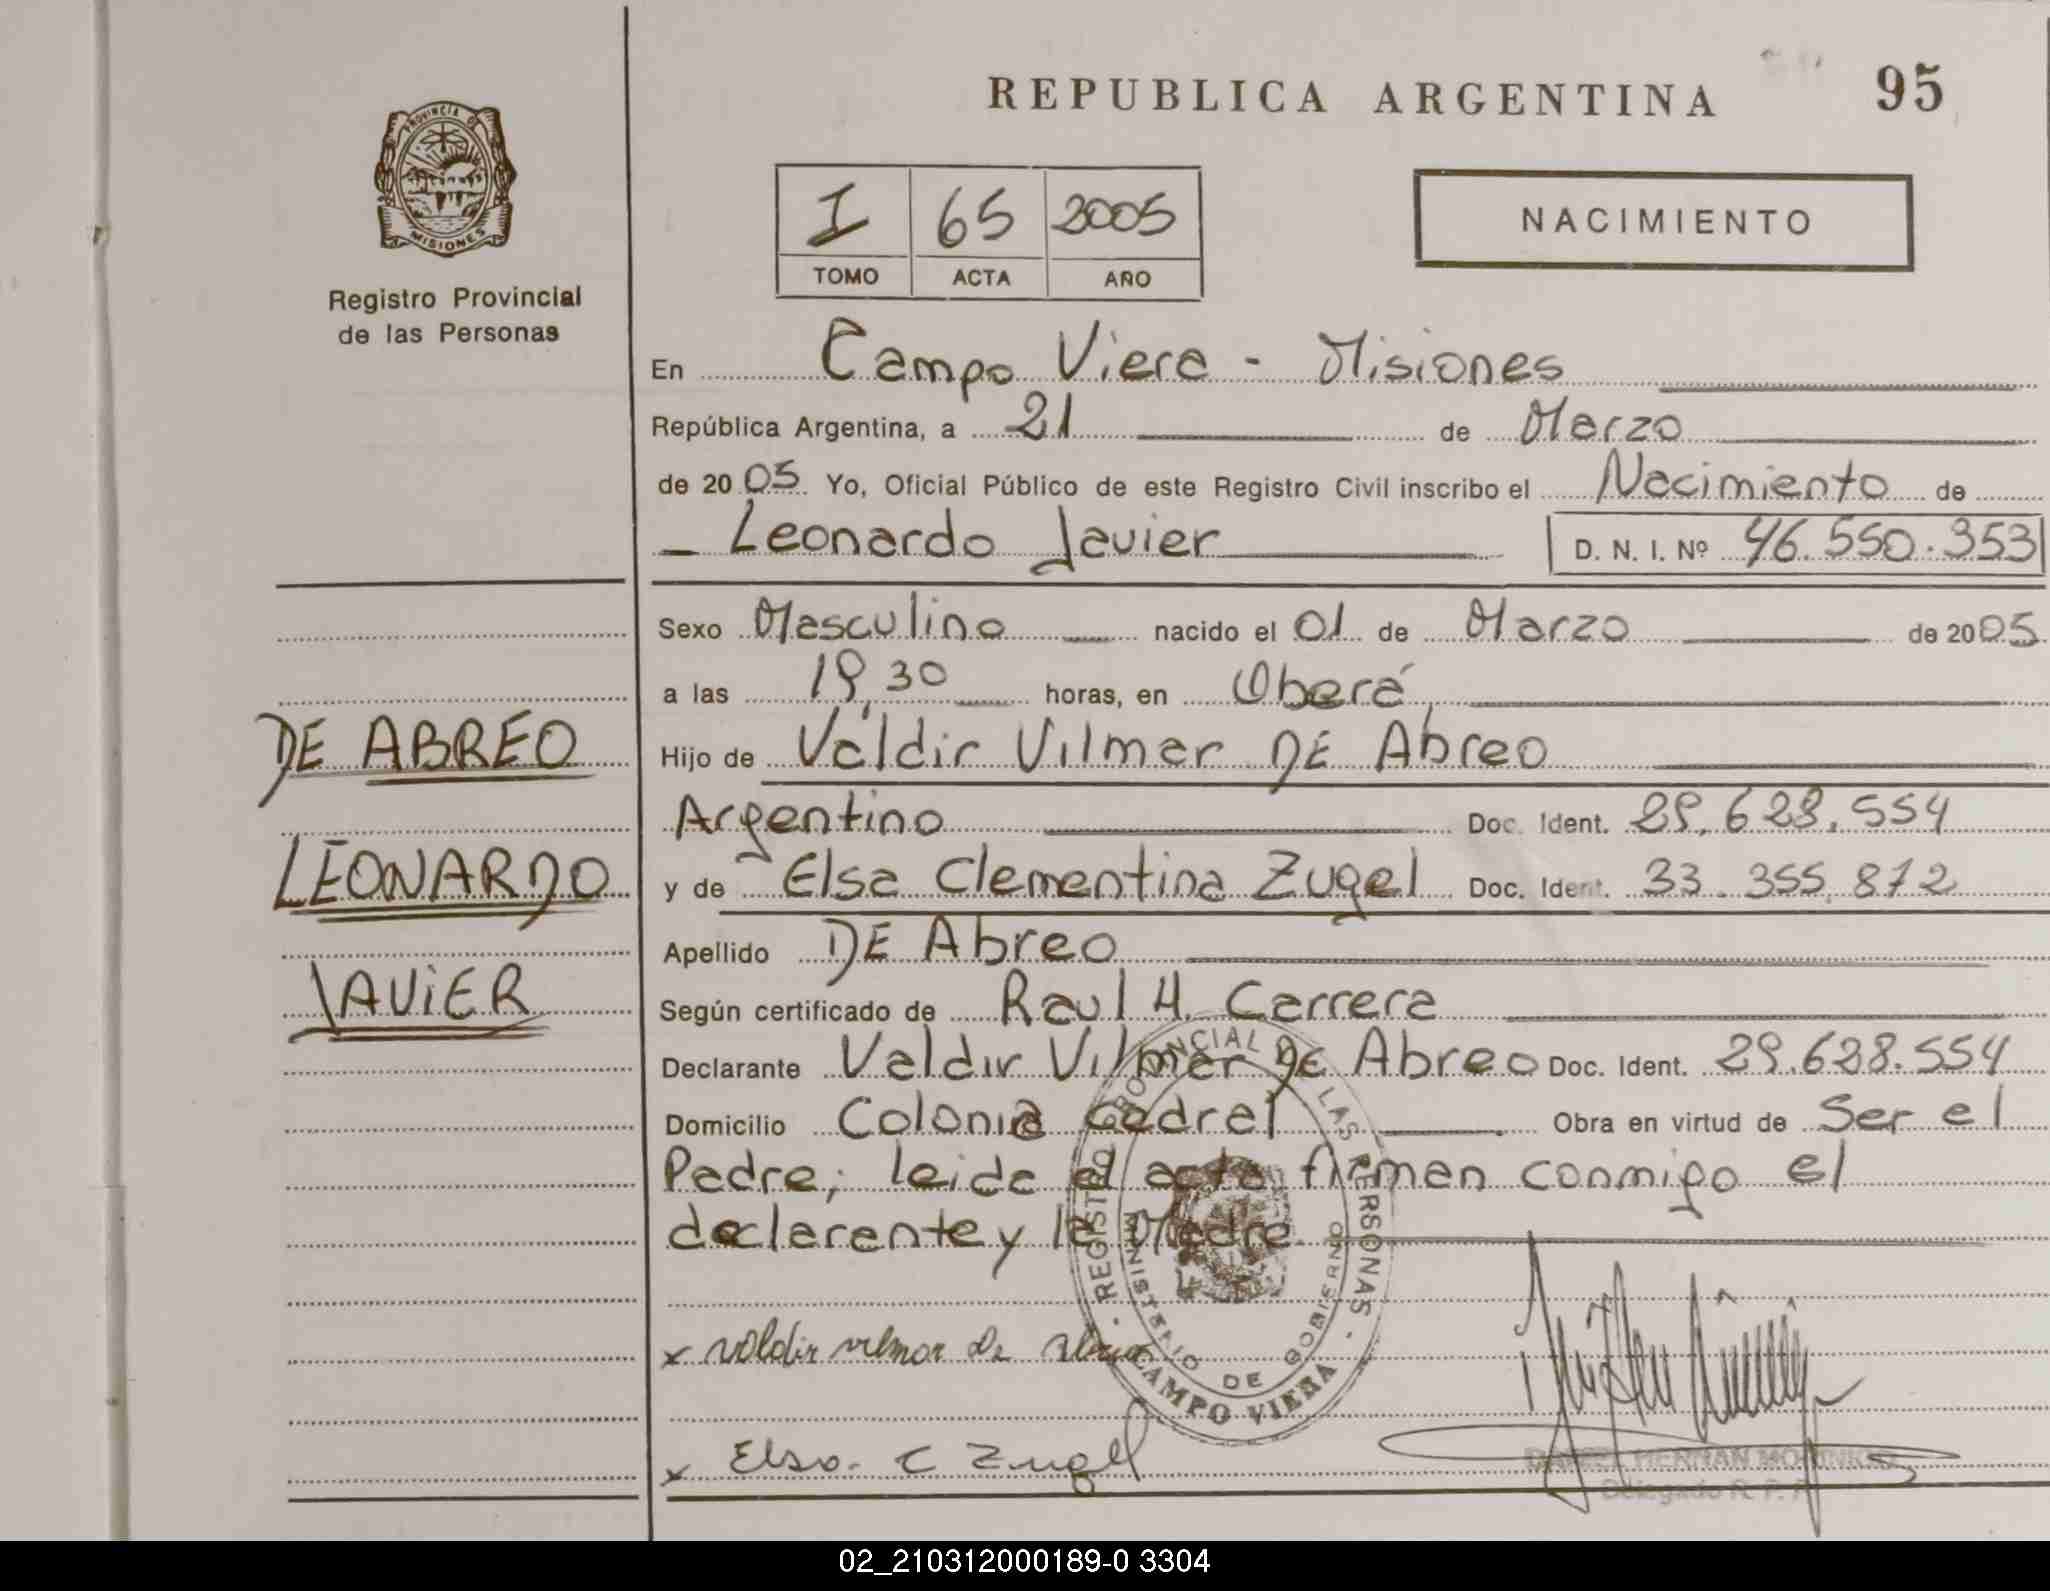 REPUBLICA ARGENTINA
95
PROVINCIA DE
MISIONES
Registro Provincial
de las Personas
I 65 2005
TOMO ACTA AÑO
NACIMIENTO
En Campo Viera - Misiones
República Argentina, a 21 de Marzo
de 2005 Yo, Oficial Público de este Registro Civil inscribo el Nacimiento de
Leonardo Javier D. N. I. Nº 46.550.353
Sexo Masculino nacido el 01 de Marzo de 2005
a las 19,30 horas, en Oberá,
Hijo de Valdir Vilmar DE Abreo
Argentino Doc. Ident. 29.628.554
y de Elsa Clementina Zugel Doc. Ident. 33.355.872
Apellido DE Abreo
Según certificado de Raul H. Carrera
Declarante Valdir Vilmar DE Abreo Doc. Ident. 29.628.554
Domicilio Colonia Cedral Obra en virtud de Ser el
Padre; leida el acta firman conmigo el
declarante y la Madre.
DE ABREO
LEONARDO
JAVIER
REGISTRO PROVINCIAL DE LAS PERSONAS
MINISTERIO DE GOBIERNO
CAMPO VIERA
x valdir vilmar de abreo
x Elsa. C Zugel
Delegado R. P. P.
02_210312000189-0 3304